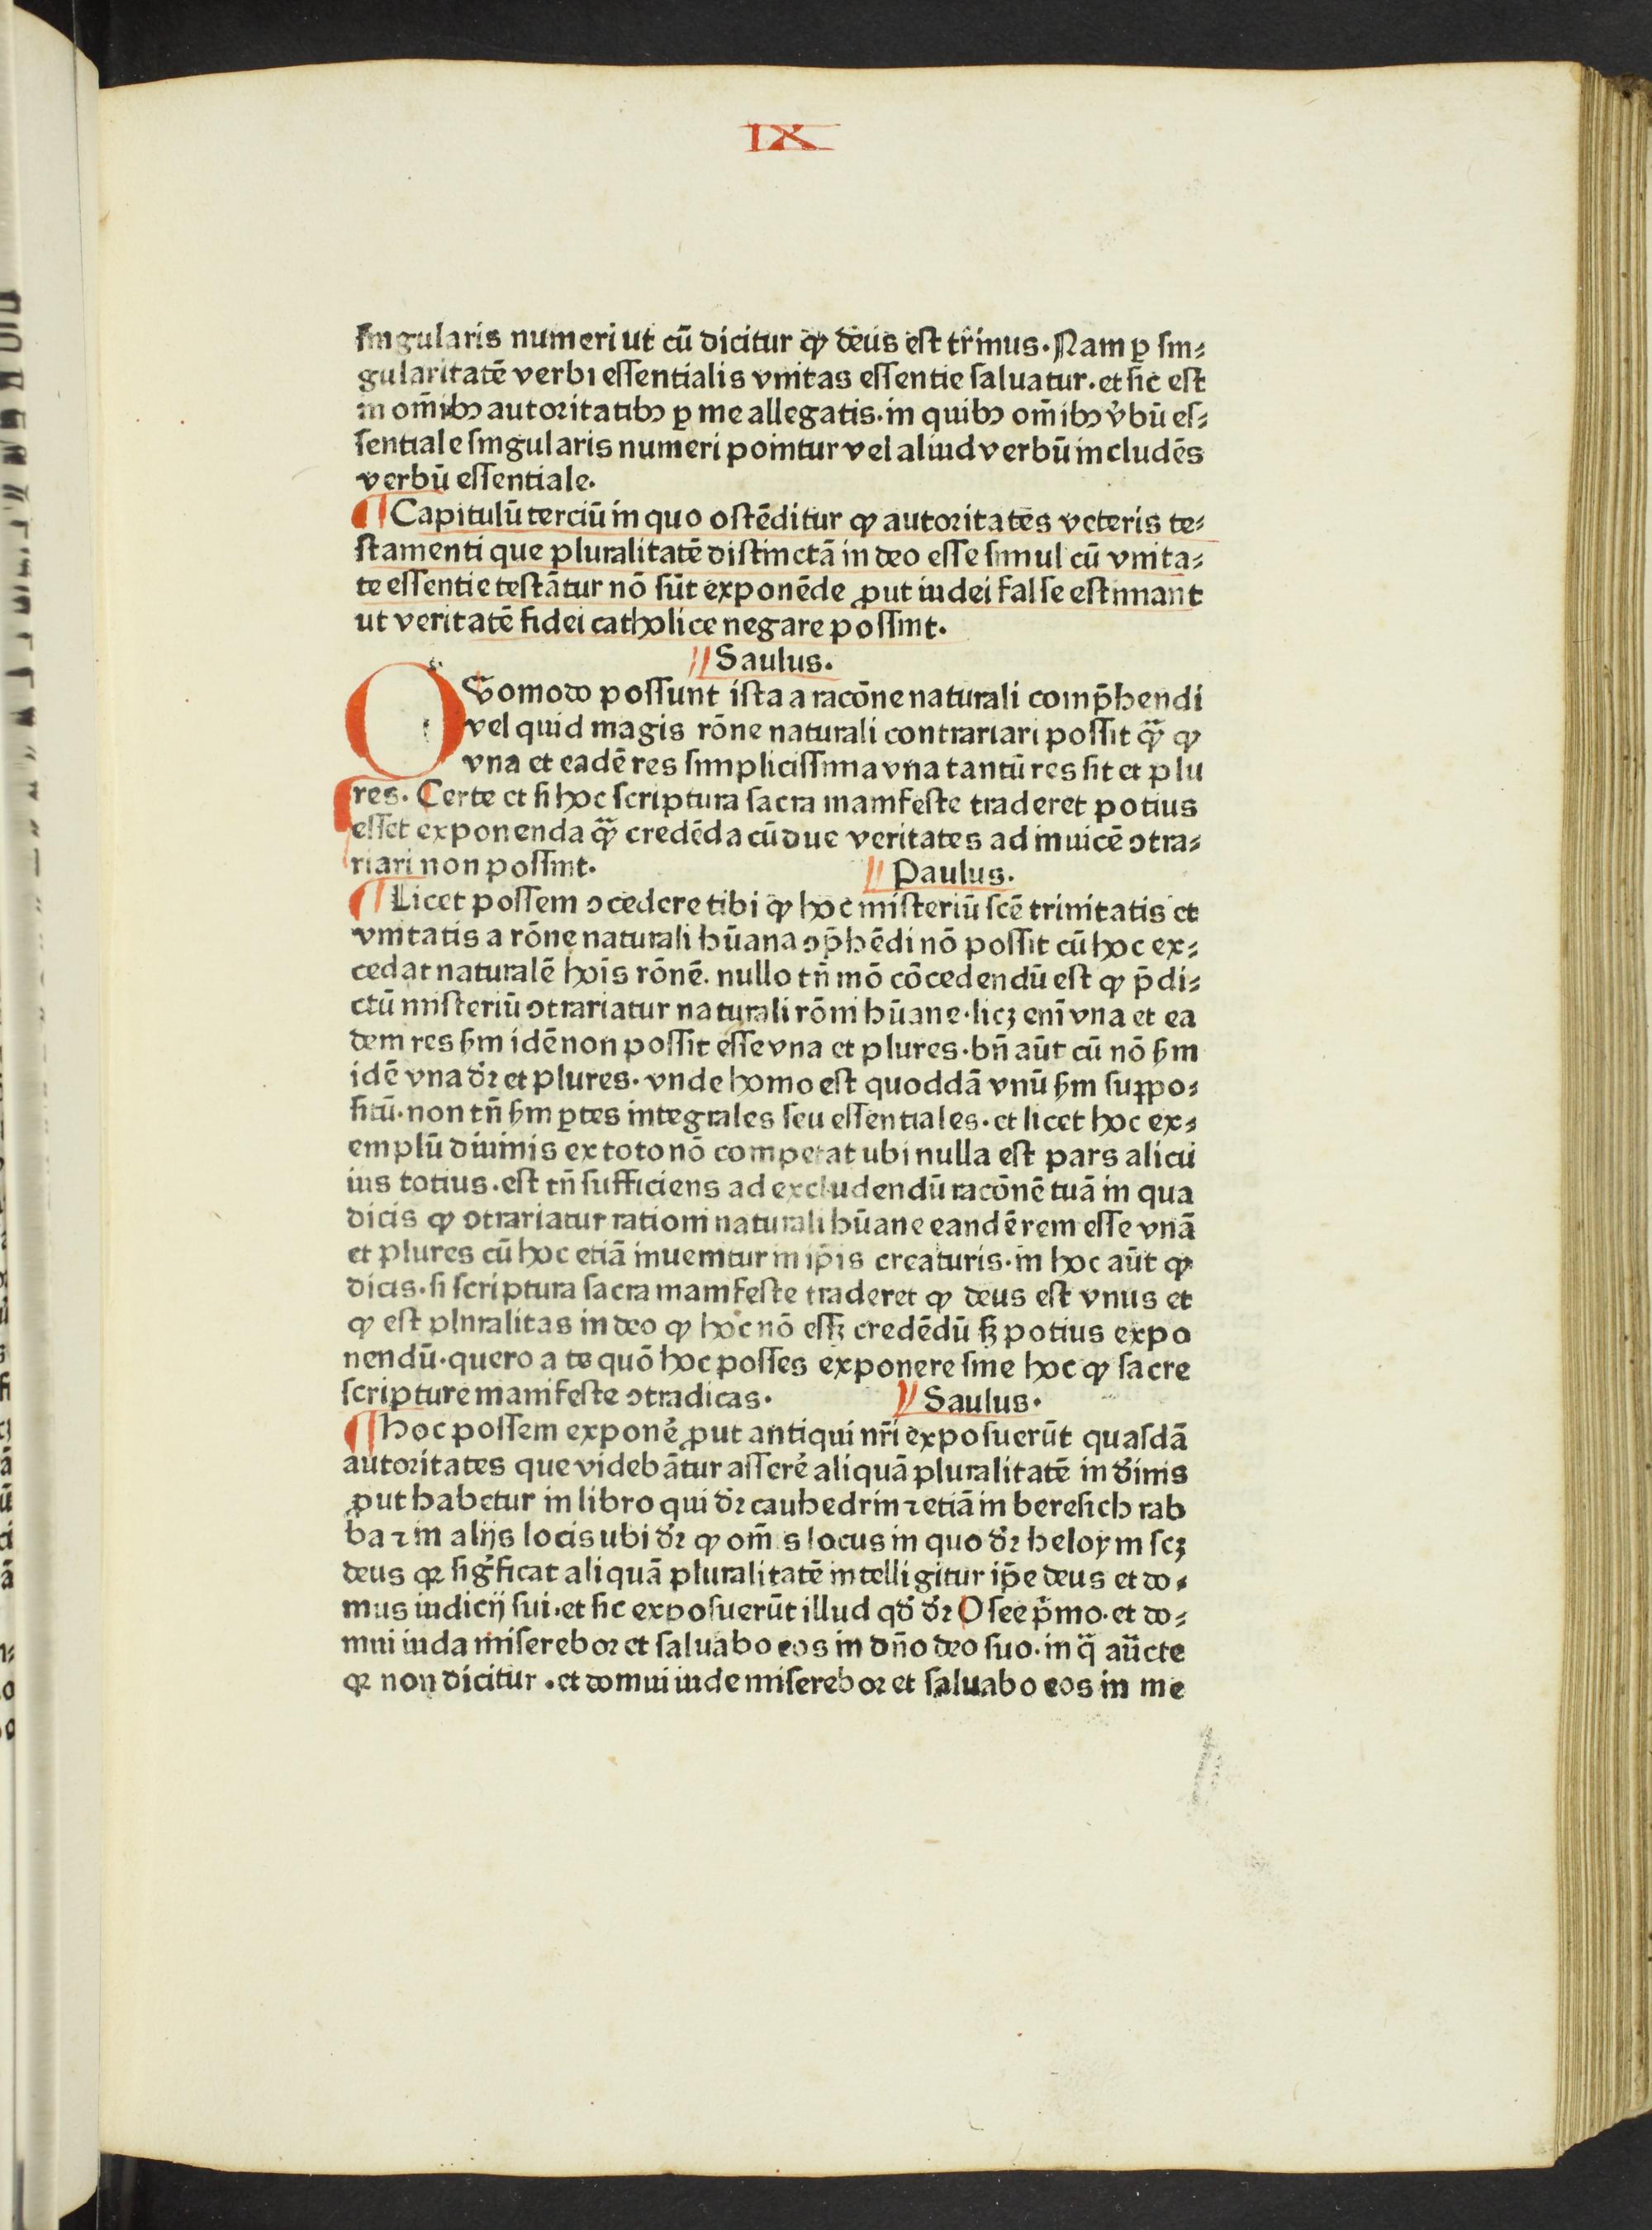 IX
singularis numeri ut cū dicitur ꝙ deus est trinus. Nam ꝑ sin⸗
gularitatē verbi essentialis vnitas essentie saluatur. et sic est
in om̄ibꝰ autoritatibꝰ ꝑ me allegatis. in quibꝰ om̄ibꝰ v̓bū es⸗
sentiale singularis numeri ponitur vel aliud verbū includēs
verbū essentiale.
¶ Capitulū terciū in quo ostēditur ꝙ autoritates veteris te⸗
stamenti que pluralitatē distinctā in deo esse simul cū vnita⸗
te essentie testātur nō sūt exponēde ꝓut iudei false estimant
ut veritatē fidei catholice negare possint.
Saulus.
QVomodo possunt ista a racōne naturali comp̄hendi
vel quid magis rōne naturali contrariari possit qᷓ ꝙ
vna et eadē res simplicissima vna tantū res sit et plu
res. Certe et si hoc scriptura sacra manifeste traderet potius
esset exponenda qᷓ credēda cū due veritates ad inuicē ꝯtra⸗
riari non possint. Paulus.
¶ Licet possem ꝯcedere tibi ꝙ hoc misteriū scē trinitatis et
vnitatis a rōne naturali hūana ꝯp̄hēdi nō possit cū hoc ex⸗
cedat naturalē hoīs rōnē. nullo tn̄ mō cōcedendū est ꝙ p̄di⸗
ctū misteriū ꝯtrariatur naturali rōni hūane. licꝫ enī vna et ea
dem res ẜm idē non possit esse vna et plures. bn̄ aūt cū nō ẜm
idē vna dr̄ et plures. vnde homo est quoddā vnū ẜm suppo⸗
sitū. non tn̄ ẜm ꝑtes integrales seu essentiales. et licet hoc ex⸗
emplū diuinis ex toto nō competat ubi nulla est pars alicu
ius totius. est tn̄ sufficiens ad excludendū racōnē tuā in qua
dicis ꝙ ꝯtrariatur rationi naturali hūane eandē rem esse vnā
et plures cū hoc etiā inuenitur in ip̄is creaturis. in hoc aūt ꝙ
dicis. si scriptura sacra manifeste traderet ꝙ deus est vnus et
ꝙ est plnralitas in deo ꝙ hoc nō essꝫ credēdū sꝫ potius expo
nendū. quero a te quō hoc posses exponere sine hoc ꝙ sacre
scripture manifeste ꝯtradicas. Saulus.
¶ Hoc possem exponē ꝓut antiqui nr̄i exposuerūt quasdā
autoritates que videbātur asserē aliquā pluralitatē in diīnis
ꝓut habetur in libro qui dr̄ cauhedrin ⁊ etiā in beresich rab
ba ⁊ in alijs locis ubi dr̄ ꝙ om̄is locus in quo dr̄ heloym scꝫ
deus qꝛ sigficat aliquā pluralitatē intelligitur ip̄e deus et do⸗
mus iudicij sui. et sic exposuerūt illud qd̄ dr̄ Osee p̄mo. et do⸗
mui iuda miserebor et saluabo eos in dn̄o deo suo. in qᷓ auc̄te
qꝛ non dicitur. et domui iude miserebor et saluabo eos in me